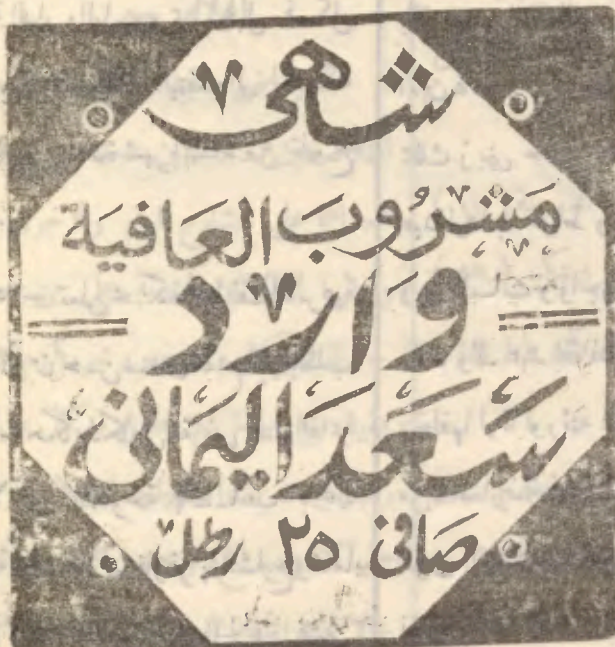 شاهى
مَشرُوبَ العَافيَة
وَارد
سَعَد اليمَانى
صَافى ٢٥ رطل